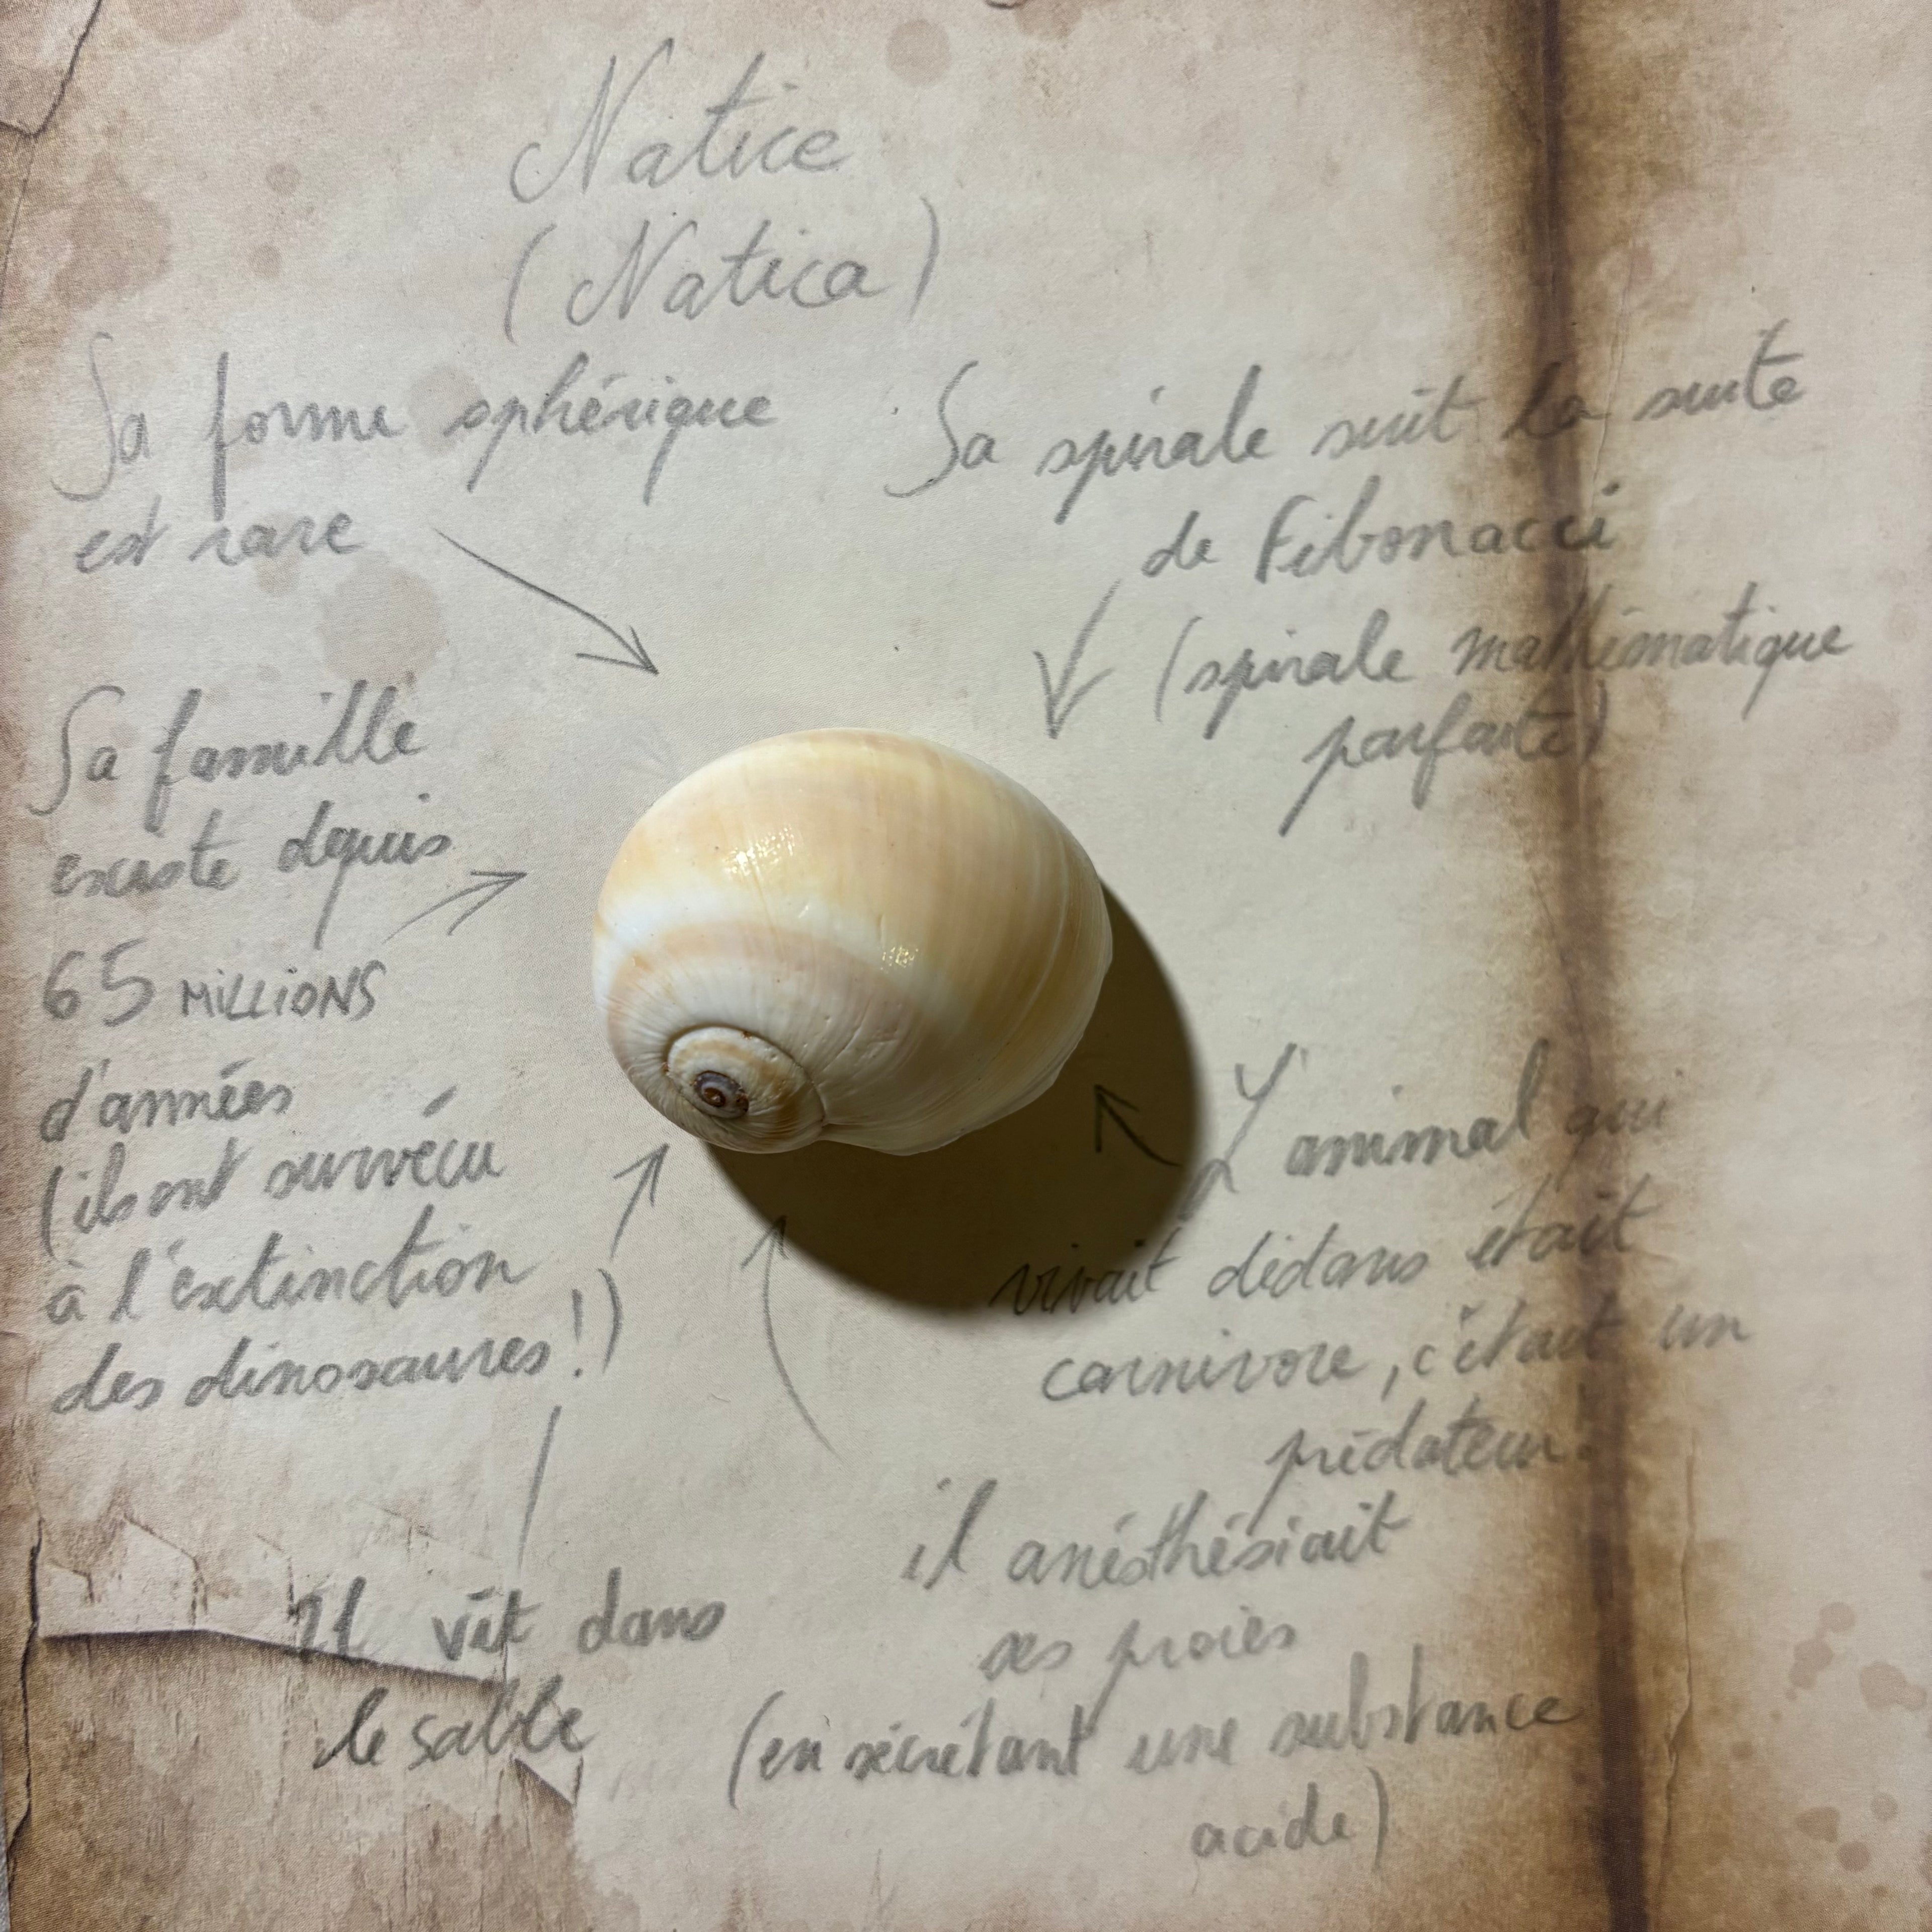 Natice
(Natica)
Sa forme sphérique
est rare
Sa spirale suit la suite
de Fibonacci
(spirale mathématique
parfaite)
Sa famille
existe depuis
65 MILLIONS
d'années
(ils ont survécu
à l'extinction
des dinosaures!)
L'animal qui
vivait dedans était
carnivore, c'était un
prédateur.
il anésthésiait
ses proies
(en sécrétant une substance
acide)
Il vit dans
le sable